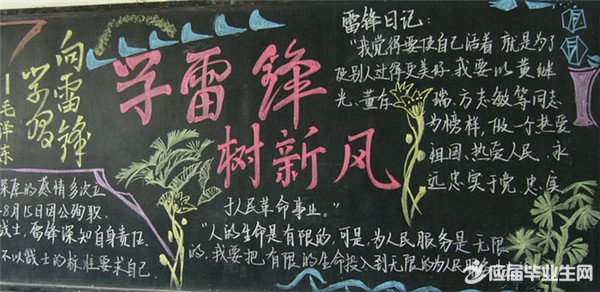 向雷锋
学习
—毛泽东
学雷锋
树新风
雷锋日记:
"我觉得要使自己活着 就是为了
使别人过得更美好.我要以黄继
光、董存 瑞、方志敏等同志
为榜样,做一个热爱
祖国、热爱人民、永
远忠实于党,忠实
于人民革命事业。"
"人的生命是有限的,可是,为人民服务是无限
的,我要把有限的生命投入到无限的为人民服务
深厚的感情多次立
8月15日因公殉职
战士,雷锋深知自身责任.
不以战士的标准要求自己.
应届毕业生网